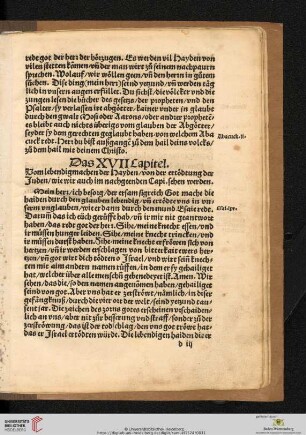 rede got der herr der hörzugen. Es werden vil Hayden von
vilen stetten kömen/vñ der man wirt zů seinem nachpaurn
sprechen. Wolauf/wir wöllen geen/vñ den herrn in gůtem
sůchen. Dise ding/mein herr/seind yetzund/vñ werden täg
lich in vnsern augen erfüllet. Du sichst/die völcker vnd die
zungen lesen die bůcher des gesetzs/der propheten/vnd den
Psalter/sy verlassen ire abgötter/kainer vnder in glaubt
durch den gwalt Mosi oder Aarons/oder andrer prophetē/
es bleibt auch nichts überigs vom glauben der Abgötter/
seyder sy dem gerechten geglaubt haben/von welchem Aba
cuck redt. Herr du bist außgangē zů dem hail deins volcks/
zů dem hail mit deinem Christo.
Abacuck.
Das XVII Capitel.
Vom lebendigmachen der Hayden/von der ertödtung der
Juden/wie wir auch im nachgenden Capi. sehen werden.
Mein herr/ich besorg/der ersam sigreich Got mache die
haiden durch den glauben lebendig/vñ ertödte vns in vn
serm vnglauben/wie er dann durch den mund Esaie redt.
Darum̄ das ich eüch gerůfft hab/vñ ir mir nit geantwort
haben/das rede got der herr. Sihe/meine knecht essen/vnd
ir můssen hunger leiden. Sihe/meine knecht trincken/vnd
ir müssen durst haben. Sihe meine knecht erfröwen sich von
hertzen/
got wirt dich tödten o Israel/vnd wirt sein knech-
ten mit aim andern namen růffen/in dem er sy gehailiget
hat/welcher über alle menschē gebenedeyet ist. Amen. Wir
sehen/das die/so den namen angenomen haben/gehailiget
seind von got. Aber vns hat er zerströwt/nämlich/in diser
gefängknuß/durch die vier ort der welt/seind yetzund tau
sent jar. Die zeichen des zorns gottes erscheinen vnschaiden-
lich an vns/aber nit zůr besserung vnd straff/sonder zů der
zerströwung/das ist der tod schlag/den vns got tröwt hat/
das er Israel ertödten würde. Die lebendigen haiden die er
d iij
UNIVERSITÄTS-
BIBLIOTHEK
HEIDELBERG
© Universitätsbibliothek Heidelberg